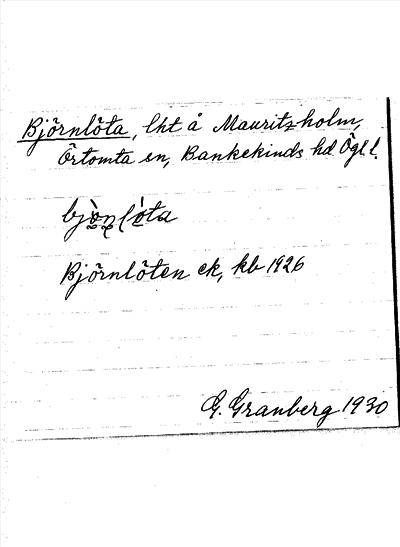 Björnlöta, lht å Mauritzholm,
Örtomta sn, Bankekinds hd Ögl l.
bjö̀nló̀ta
Björnlöten ek, kb 1926
G. Granberg 1930